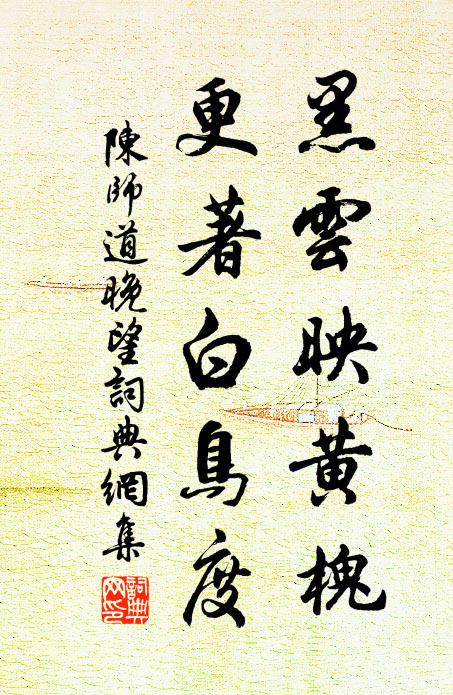 黑雲映黃槐
更著白鳥度
陳師道晚望詞典網集
詞典網印